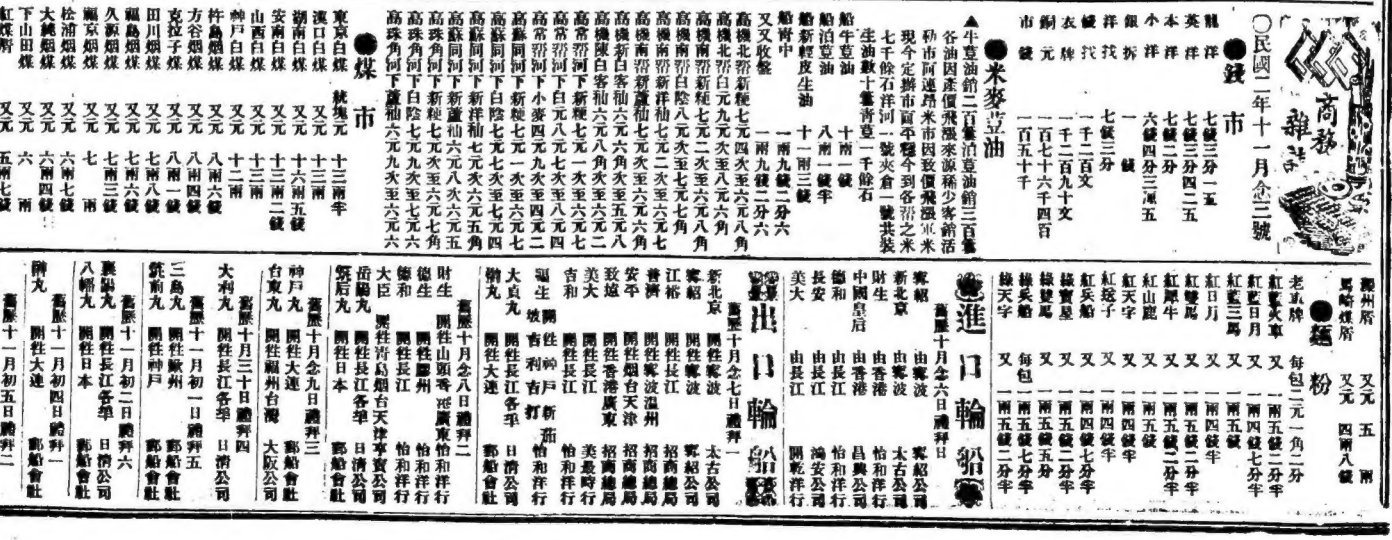 商務雜誌
〇民國二年十一月念三號
●錢市
龍洋 七錢三分一五
英洋 七錢三分四二五
本洋
小洋 六錢四分三厘五
銀拆 一錢
洋找 七錢三分
錢找 一千二百文
衣牌 一千二百九十文
銅元 一百七十六千四百
市錢 一百五十千
●米麥荳油
▲牛荳油館二百簍泊荳油館三百簍
各油因產價飛漲來源稀少客銷活
勒市阿連昂米市因致價飛漲軍米
現今定辦市面平穩今到各帮之米
七千餘石洋河一號夾倉一號共裝
生油數十簍青荳一千餘石
船牛荳油 十兩一錢
船泊荳油 八兩一錢半
船新輕皮生油 十一兩三錢
船青中 一兩九錢二分六
又又收盤 一兩九錢二分六
高機北帮新粳七元四次至六元八角
高機北帮白元九元次至八元六角
高機南帮白陰八元次至七元七角
高機南帮新粳七元二次至六元八角
高機南帮新蘆秈六元八次至六元六
高機新白客秈六元六次至五元八
高機陳白客秈六元八角次至六元二
高常帮河下新粳七元一次至六元七
高常帮河下白元八元七次至七元四
高常帮河下小麥四元次至四元二
高蘇同河下新粳七元一次至六元七
高蘇同河下白陰七元八次至七元四
高蘇同河下新洋秈七元次至六元五角
高蘇同河下新蘆秈六元八次六元五
高珠角河下新粳七元次至六元七角
高珠角河下白陰七元九次至七元六
高珠角河下蘆秈六元九次至六元六
●煤市
東京白煤 統塊元 十三兩半
漢口白煤 又元 十三兩
湖南白煤 又元 十六兩五錢
安南白煤 又元 十三兩二錢
山西白煤 又元 十三兩
神戶白煤 又元 十二兩
杵島烟煤 又元 八兩六錢
方谷烟煤 又元 八兩四錢
克拉子煤 又元 八兩一錢
田川烟煤 又元 七兩八錢
福島烟煤 又元 七兩六錢
久源烟煤 又元 七兩三錢
福京烟煤 又元 七兩
松浦烟煤 又元 六兩七錢
大繩烟煤 又元 六兩四錢
下山田煤 又元 六兩
紅煤屑 又元 五兩七錢
州煤屑 又元 五兩
馬崎煤屑 又元 四兩八錢
●麵粉
老車牌 每包二元一角二分
紅藍火車 又 一兩五錢二分半
紅藍日月 又 一兩四錢七分半
紅藍三馬 又 一兩五錢
紅日月 又 一兩四錢半
紅雙馬 又 一兩五錢二分半
紅犀牛 又 一兩五錢二分半
紅山鹿 又 一兩四錢半
紅送子 又 一兩四錢半
紅天字 又 一兩四錢七分半
紅兵船 又 一兩五錢二分半
綠寶星 又 一兩五錢二分半
綠雙馬 又 一兩五錢五分
綠兵船 每包 一兩五錢七分半
綠天字 又 一兩五錢二分半
進口輪船
舊歷十月念六日禮拜日
甯紹 由甯波 甯紹公司
新北京 由甯波 太古公司
財生 由香港 怡和洋行
中國皇后 由香港 昌興公司
德和 由長江 怡和洋行
長安 由長江 鴻安公司
美大 由長江 開乾洋行
出口輪船
舊歷十月念七日禮拜一
新北京 開往甯波 太古公司
甯紹 開往甯波 甯紹公司
江裕 開往長江 招商總局
普濟 開往溫州 招商總局
安平 開往烟台天津 招商總局
致遠 開往香港廣東 招商總局
美大 開往長江 美最時行
吉和 開往長江 怡和洋行
福生 開往神戶新茄坡吉利吉打 怡和洋行
大貞丸 開往長江各埠 日清公司
丸 開往大連 郵船會社
舊歷十月念八日禮拜二
財生 開往山頭香港廣東 怡和洋行
德生 開往膠州 怡和洋行
德和 開往長江 怡和洋行
大臣 開往靑島烟台天津 亨寶公司
岳陽丸 開往長江各埠 日清公司
筑后丸 開往日本 郵船會社
舊歷十月念九日禮拜三
神戶丸 開往大連 郵船會社
台東丸 開往福州台灣 大阪公司
舊歷十月三十日禮拜四
大利丸 開往長江各埠 日清公司
舊歷十一月初一日禮拜五
三島丸 開往歐州 郵船會社
筑前丸 開往神戶 郵船會社
舊歷十一月初二日禮拜六
襄陽丸 開往長江各埠 日清公司
舊歷十一月初四日禮拜一
八幡丸 開往日本 郵船會社
舊歷十一月初五日禮拜二
神丸 開往大連 郵船會社